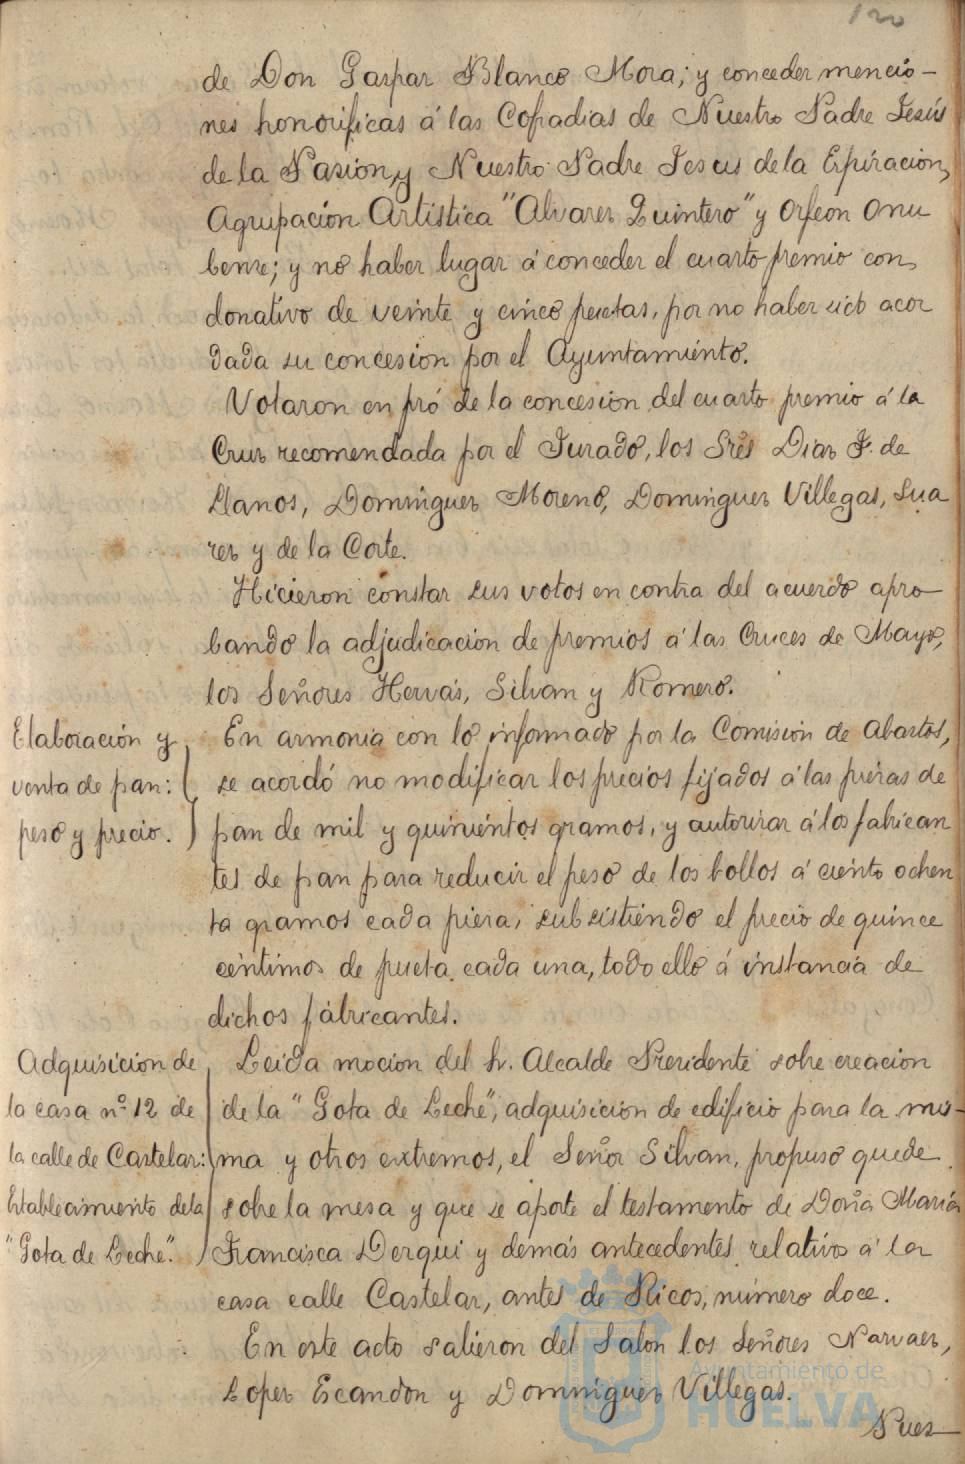 120
de Don Gaspar Blanco Mora; y conceder mencio-
nes honorificas á las Cofradias de Nuestro Padre Jesús
de la Pasion, y Nuestro Padre Jesus de la Expiracion,
Agrupación Artistica "Alvarez Quintero" y Orfeon Onu
bense; y no haber lugar á conceder el cuarto premio con
donativo de veinte y cinco pesetas, por no haber sido acor
dada su concesion por el Ayuntamiento.
Votaron en pró de la concesion del cuarto premio á la
Cruz recomendada por el Jurado, los Sres Diaz F. de
Llanos, Dominguez Moreno, Dominguez Villegas, Sua
rez y de la Corte.
Hicieron constar sus votos en contra del acuerdo apro
bando la adjudicacion de premios á las Cruces de Mayo,
los Señores Hervás, Silvan y Romero.
Elaboración y
venta de pan:
peso y precio.
En armonia con lo informado por la Comision de Abastos,
se acordó no modificar los precios fijados á las piezas de
pan de mil y quinientos gramos, y autorizar á los fabrican
tes de pan para reducir el peso de los bollos á ciento ochen
ta gramos cada pieza, subsistiendo el precio de quince
céntimos de peseta cada una, todo ello á instancia de
dichos fabricantes.
Adquisicion de
la casa nº 12 de
la calle de Castelar:
Establecimiento de la
"Gota de Leche".
Leida mocion del Sr. Alcalde Presidente sobre creacion
de la "Gota de Leche", adquisicion de edificio para la mis-
ma y otros extremos, el Señor Silvan, propuso quede
sobre la mesa y que se aporte el testamento de Doña Maria
Francisca Derqui y demás antecedentes relativos á la
casa calle Castelar, antes de Ricos, número doce.
En este acto salieron del salon los Señores Narvaez,
Lopez Escandon y Dominguez Villegas.
Pues
Ayuntamiento de
HUELVA